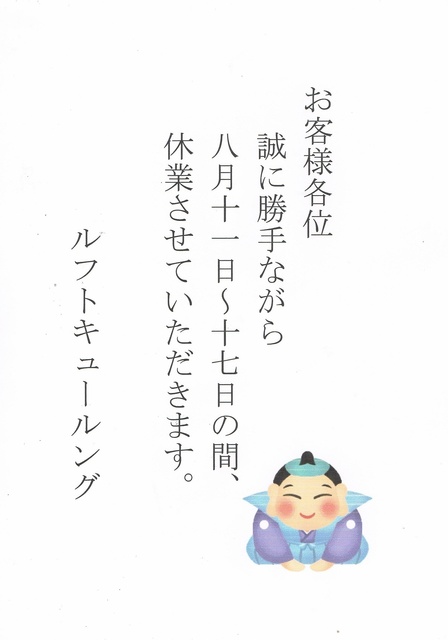 お客様各位
誠に勝手ながら
八月十一日～十七日の間、
休業させていただきます。
ルフトキュールング